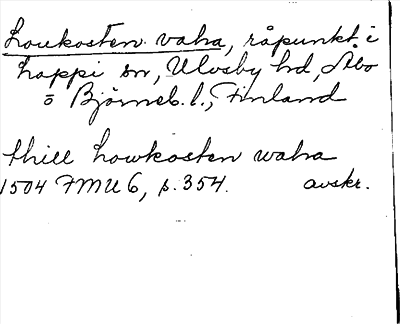 Loukosten vaha, råpunkt i
Lappi sn, Ulvsby hd, Åbo
o Björneb. l., Finland
thill Lowkosten waha
1504 FMU 6, s. 354. avskr.